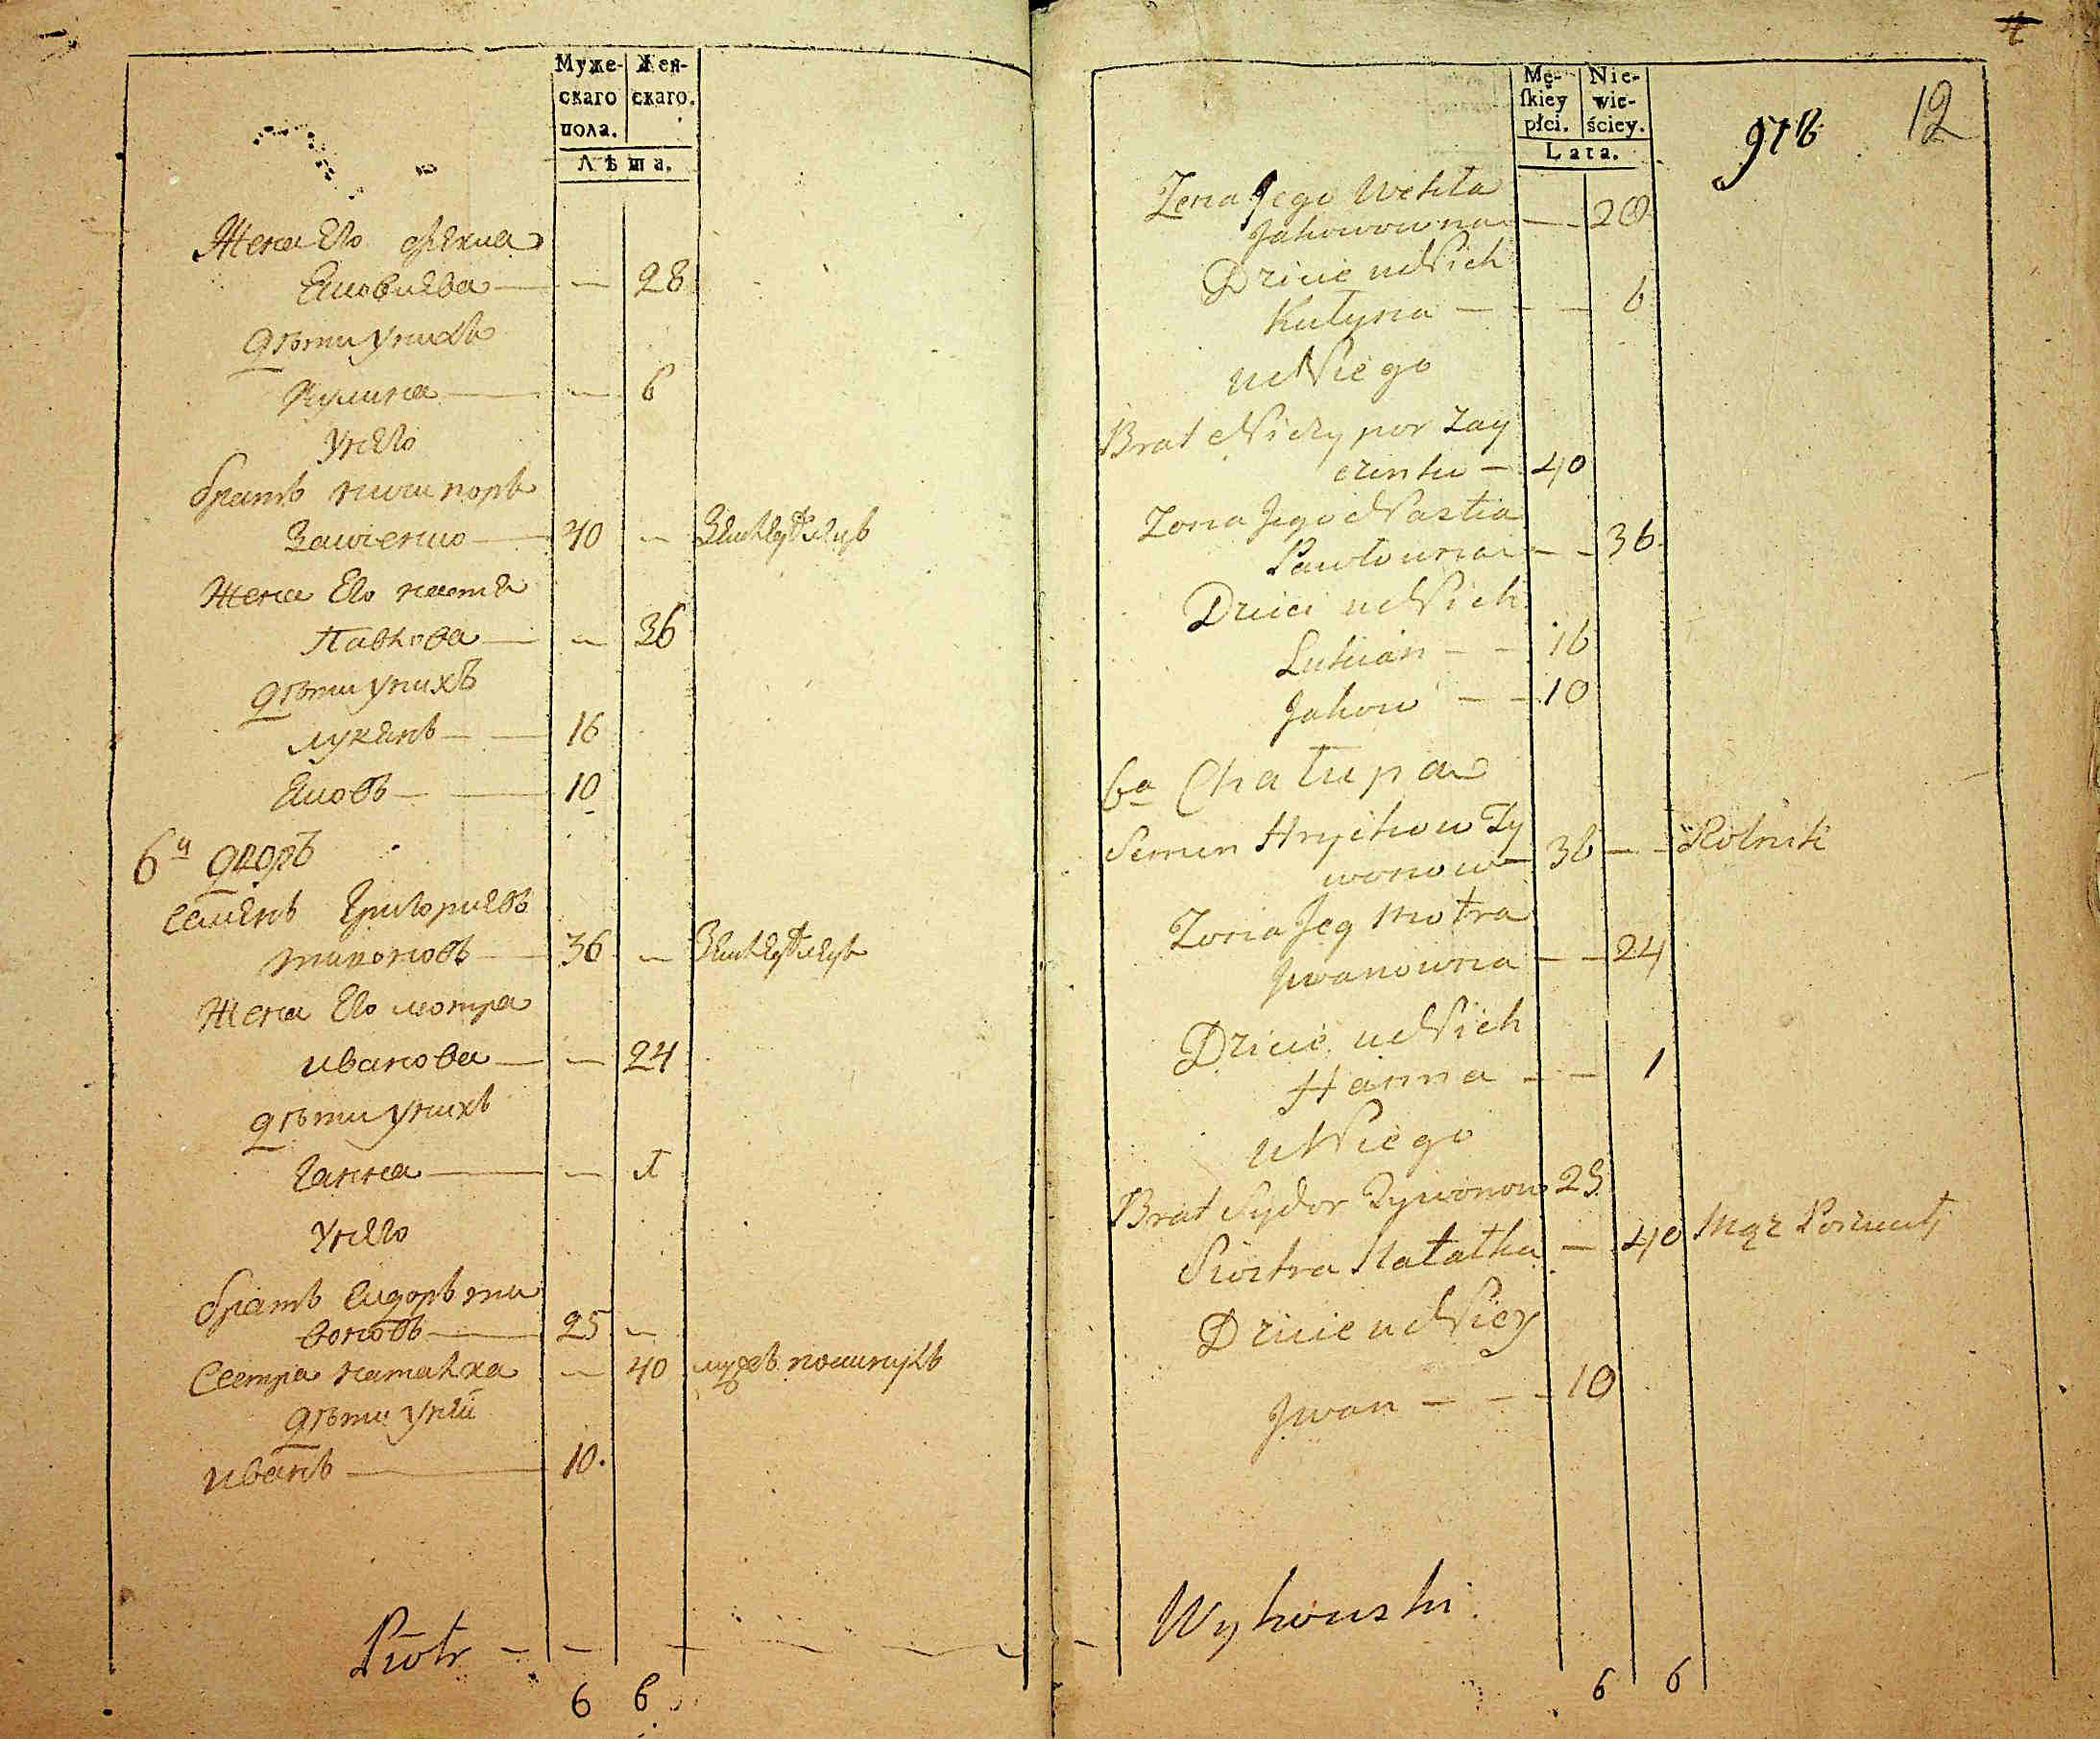 Муже-
скаго
пола.
Жен-
скаго.
Лѣта.
Жена Его фекла
Яковлева — — 28
дѣти унихъ
Кулина — — 6
Унего
братъ ничипоръ
Заиченко — 40 —
Жена Его настя
Павлова — — 36
дѣти унихъ
лукянъ — — 16
Яковъ — — 10
6й дворъ
Семенъ Григориевъ
тивоновъ — 36 —
Жена Его мотра
иванова — — 24
дѣти унихъ
Ганна — — 1
Унего
братъ Сидоръ ти
воновъ — 25 —
Сестра наталка — 40 мужъ
дѣти уней
иванъ — 10.
Piotr — —
6 6
Mę-
ſkiey
płci.
Nie-
wie-
ściey.
Lata.
12
Zona Jego Wekła
Jakowowna — — 28
Dzieie u Nich
Kulyna — — — 6
u Niego
Brat Niczypor Zay
czenko — 40
Zona Jego Nastia
Pawłowna — — 36
Dzieci u Nich
Lukian — — 16
Jakow — — 10
6a Chałupa
Semen Hryhow Ty
wonow — 36 — — Rolnik
Zona Jeg Motra
Jwanowna — — 24
Dzieie u Nich
Hanna — — 1
u Niego
Brat Sydor Tywonow 25
Siostra Natałka — 40 Mąż
Dzieie u Niey
Jwan — — — 10
Wyhowski.
6 6